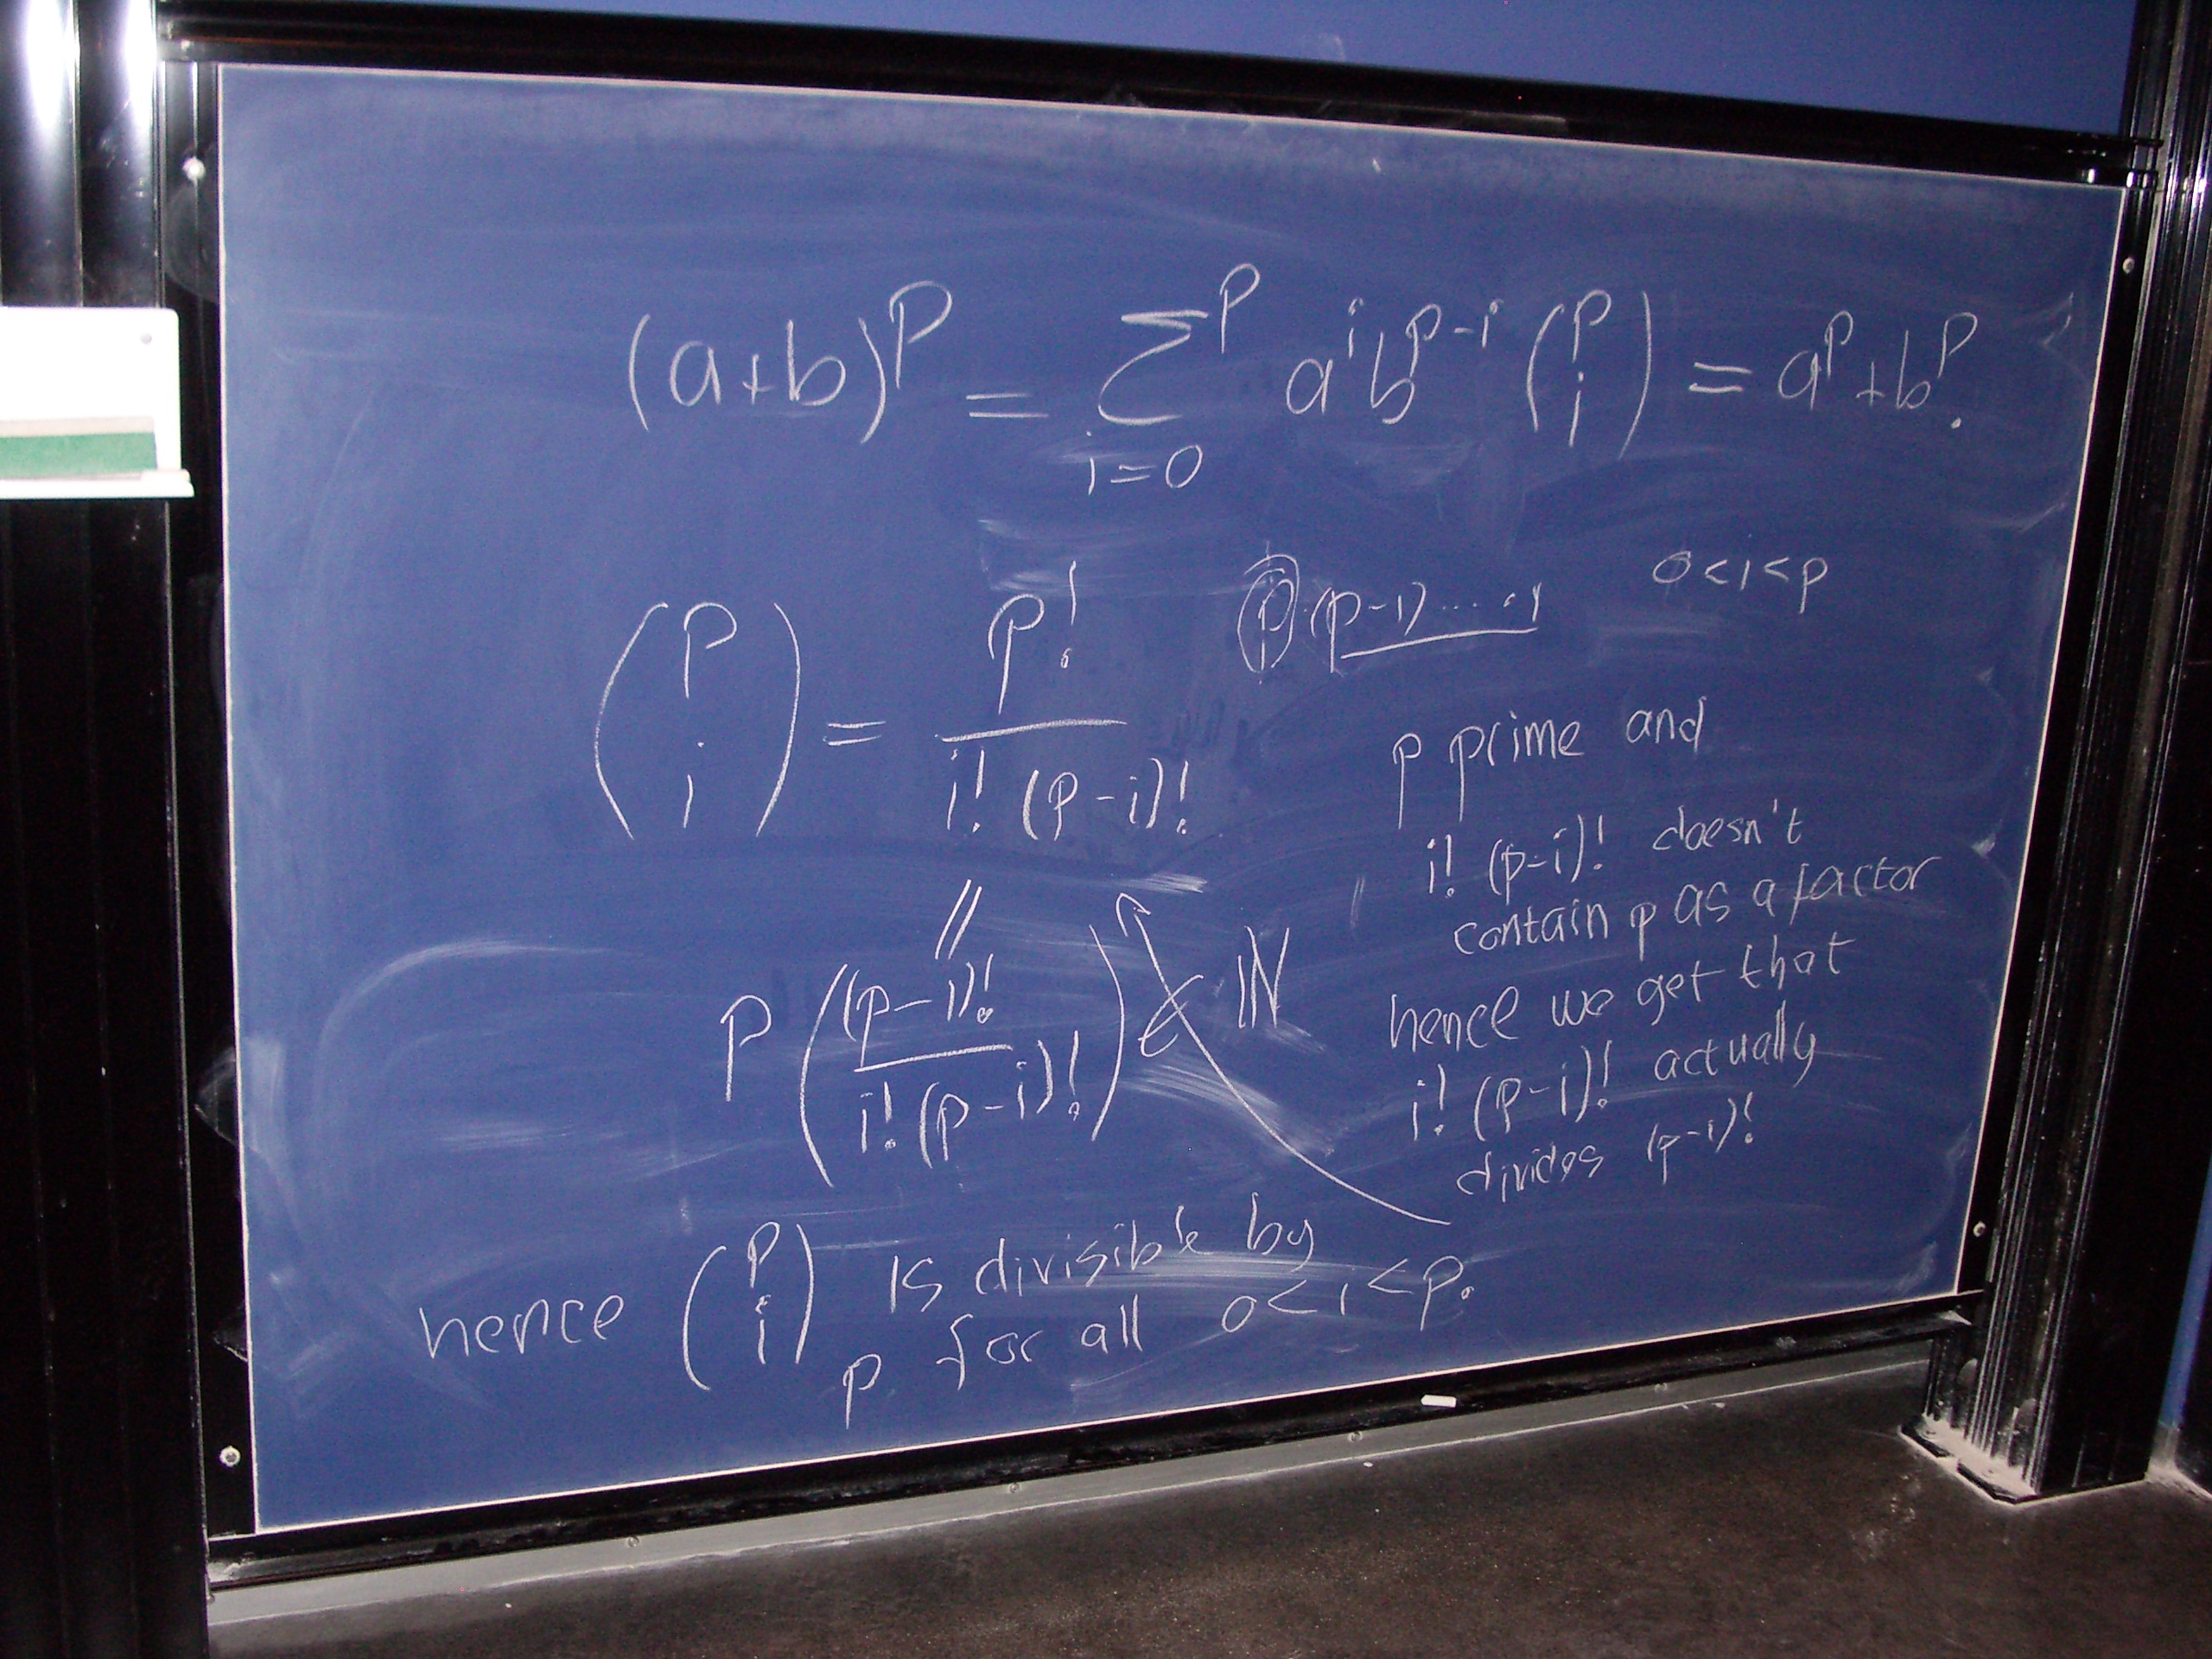 (a+b)^p = \sum_{i=0}^{p} a^i b^{p-i} \binom{p}{i} = a^p + b^p.
0<i<p
\binom{p}{i} = \frac{p!}{i! (p-i)!}
p·(p-1)·...·1
p prime and
i! (p-i)! doesn't
contain p as a factor
hence we get that
i! (p-i)! actually
divides (p-1)!
//
p \left( \frac{(p-1)!}{i! (p-i)!} \right) ∈ ℕ
hence \binom{p}{i} is divisible by
p for all 0<i<p.